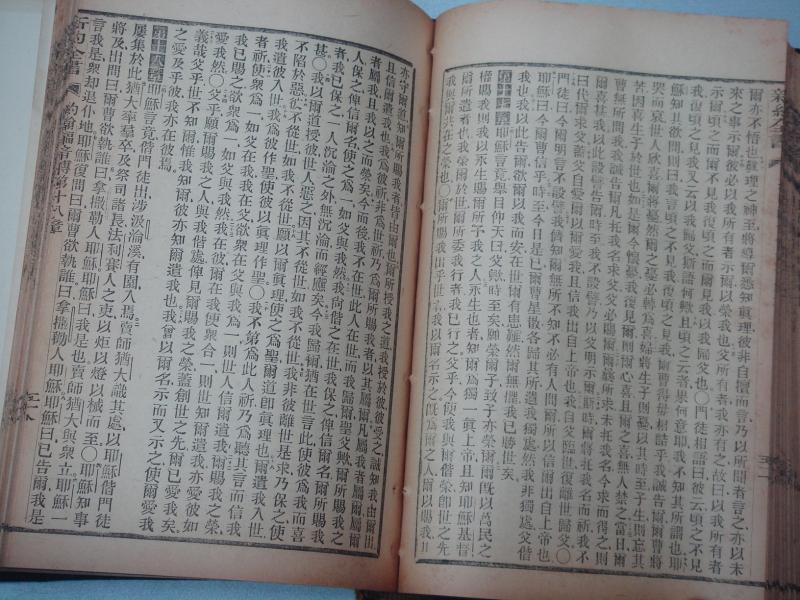 爾亦不悟也眞理之神至將導爾悉知眞理彼非自擅而言乃以所聞者言之亦以未
來之事示爾彼必以我所有者示爾以榮我也父所有者我亦有之故曰以我所有者
示爾頃之而爾不見我復頃之而爾見我以我歸父也○門徒相語曰彼云頃之不見
復頃之見我又云以我歸父斯語何歟且頃之云者果何意耶我不知其所謂也耶
穌知其欲問則曰我言頃之不見我復頃之而見我爾以此相詰乎我誠告爾爾曹將
哭而哀世人欣喜爾將憂然爾之憂必轉爲喜婦將生子則憂以其時至生子則忘其
苦因喜生子於世也如是爾今懷憂我復見爾則爾心喜且爾之喜無人禁之當日爾
曹無所問我我誠告爾凡托我名求父父必賜爾爾向未托我名求今求而得之則
爾喜盈矣我設譬告爾時至我不設譬乃以父明示爾爾時爾將托我名求我不
曰代爾求父蓋父自愛爾以爾愛我且信我出自上帝也我由父臨世復離世歸父○
門徒曰今爾明言不設譬我儕知爾無所不知不必有人問爾所以信爾出自上帝也
耶穌曰今爾曹信乎時至今日是已爾曹星散各歸其所遺我獨處然我非獨處父偕
我也我以此告爾欲爾以我而安在世爾有患難然爾無懼我已勝世矣
第十七章 耶穌言竟舉目仰天曰父歟時至矣願榮爾子致子亦榮爾爾旣以萬民之
權賜我則我以永生賜爾所予我之人永生也者知爾爲獨一眞上帝且知耶穌基督
爾所遣者也我榮爾於世爾所委我行者我已行之父乎今使我與爾偕榮卽世之先
我與爾所共在之榮也○爾由世所賜我之人我以爾名示之旣爲爾之人爾以賜我
亦守爾道知爾所賜我者皆由爾也爾所授我之道我授於彼彼受之誠知我由爾出
且信爾遣我也我爲彼祈非爲世祈乃爲爾所賜我者以其屬爾凡屬我者屬爾屬爾
者屬我且我以之而榮矣今而後我不在世彼猶在世而我歸爾聖父歟爾所賜我之
人保之俾信爾名使之爲一如父與我然我與偕在世我保之俾信爾名爾所賜我
者我已保之一人沉淪之外無沉淪而經應矣今我歸爾猶在世言此使彼爲我而喜
甚○我以爾道授彼世人惡之因其不從世如我不從世我非彼離世是求乃保之使
不陷於惡彼不從世如我不從世願爾以眞理使之爲聖爾道卽眞理也爾遣我入世
我遣彼入世我爲彼作聖使彼以眞理作聖○我不第爲此人祈乃爲聽其言而信我
者祈使衆爲一如父在我我在父欲衆在父與我爲一則世人信爾遣我爾賜我之榮
我已賜之欲衆爲一如父與我然我在彼爾在我使衆合一則世知爾遣我亦愛彼如
愛我然○父乎願爾賜我之人與我偕處俾見爾賜我之榮蓋創世之先爾已愛我矣
義哉父乎世不知爾惟我知爾彼亦知爾遣我也我曾以爾名示而又示之使爾愛我
之愛及乎彼我亦在彼焉
第十八章 耶穌言竟偕門徒出涉汲淪溪有園入焉賣師猶大識其處以耶穌偕門徒
屢集於此猶大率羣卒及祭司諸長𠵽唎賽人之吏以炬以燈以械而至○耶穌知事
將及出問曰爾曹欲執誰曰拿撒勒人耶穌耶穌曰我是也賣師猶大與衆立耶穌一
言我是衆却退仆地耶穌復問曰爾曹欲執誰曰拿撒勒人耶穌耶穌曰已告爾我是
新約全書 約翰福音傳第十八章